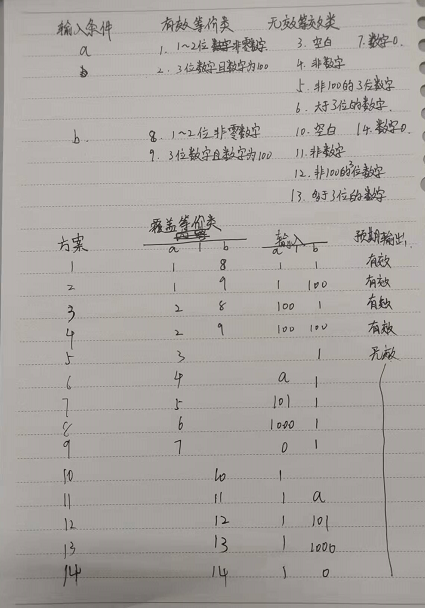 输入条件 有效等价类 无效等效类
a 1. 1~2位非零数字 3. 空白 7. 数字0.
2. 3位数字且数字为100 4. 非数字
5. 非100的3位数字
6. 大于3位的数字.
b. 8. 1~2位非零数字 10. 空白 14. 数字0.
9. 3位数字且数字为100 11. 非数字
12. 非100的3位数字
13. 多于3位的数字
覆盖等价类
方案 a b 输入 a b 预期输出
1 1 8 1 1 有效
2 1 9 1 100 有效
3 2 8 100 1 有效
4 2 9 100 100 有效
5 3 1 无效
6 4 a 1
7 5 101 1
8 6 1000 1
9 7 0 1
10 10 1
11 11 1 a
12 12 1 101
13 13 1 1000
14 14 1 0